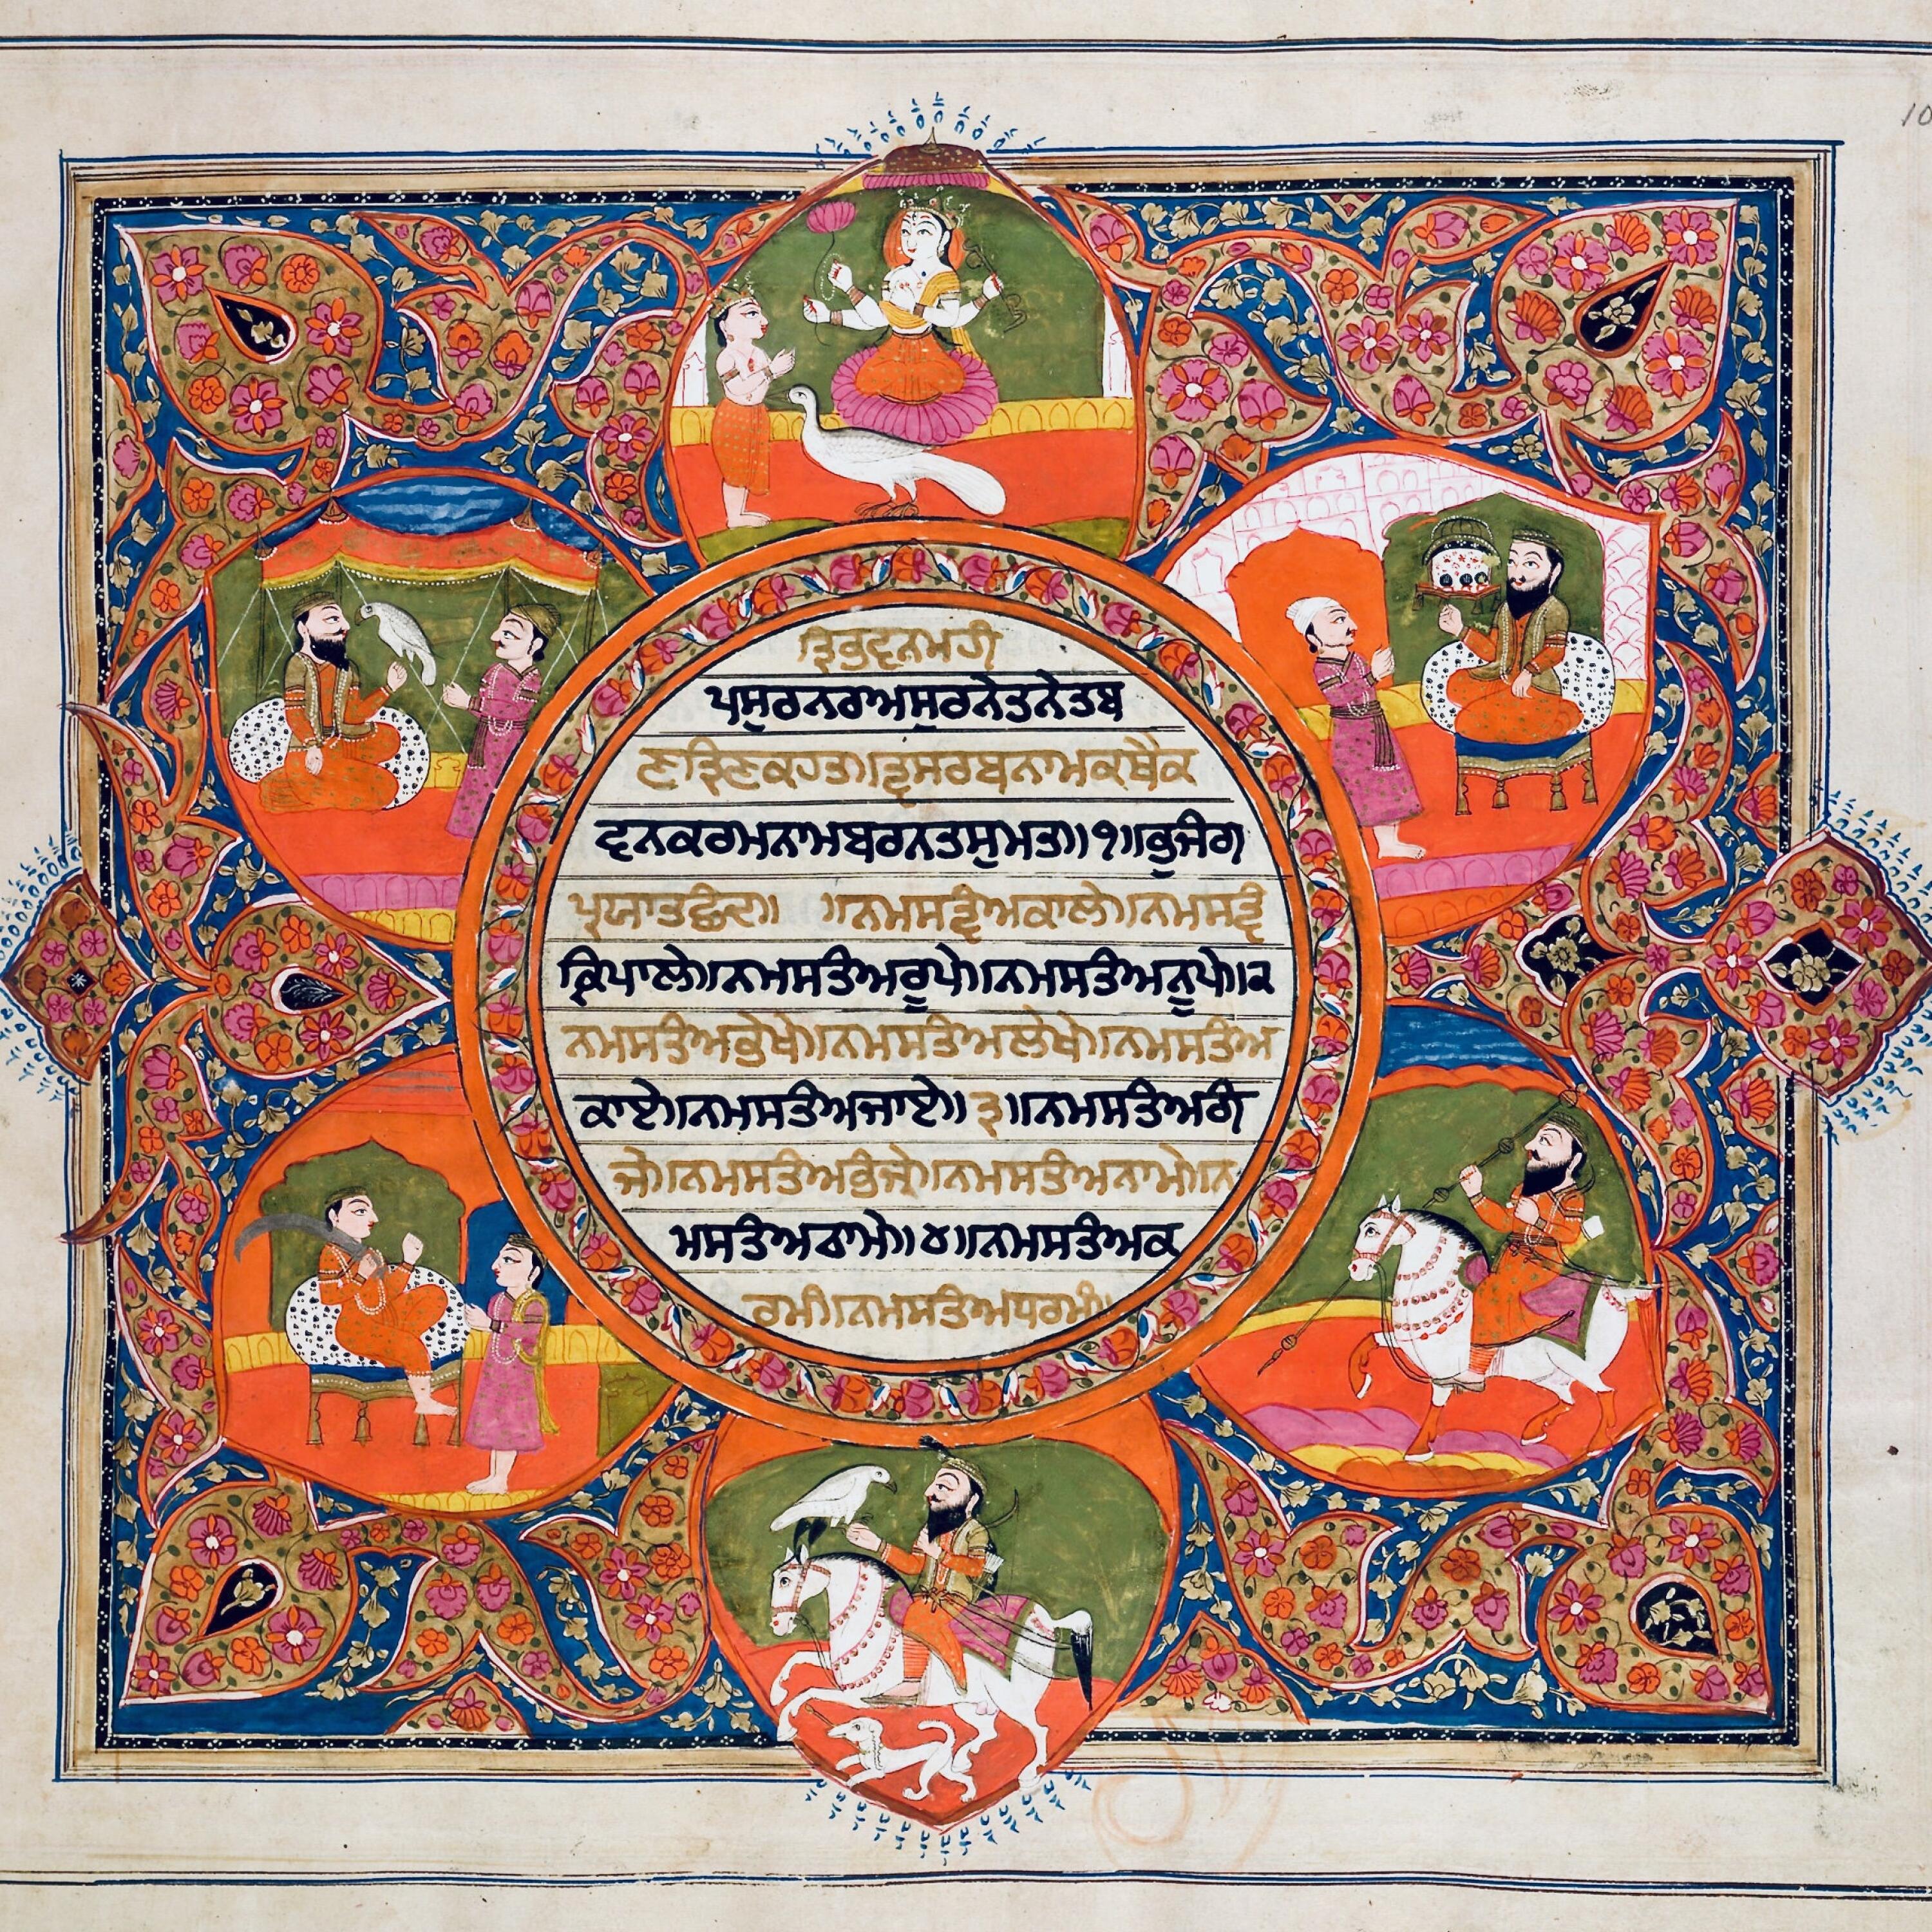 10
ਤ੍ਰਿਭੁਵਨਮਹੀ
ਪਸੁਰਨਰਅਸੁਰਨੇਤਨੇਤਬ
ਣਤ੍ਰਿਣਕਹਤ॥ਤ੍ਵਸਰਬਨਾਮਕਥੈਕ
ਵਨਕਰਮਨਾਮਬਰਨਤਸੁਮਤ॥੧॥ਭੁਜੰਗ
ਪ੍ਰਯਾਤਛੰਦ॥ ॥ਨਮਸਤ੍ਵੰਅਕਾਲੇ॥ਨਮਸਤ੍ਵੰ
ਕ੍ਰਿਪਾਲੇ॥ਨਮਸਤੰਅਰੂਪੇ॥ਨਮਸਤੰਅਨੂਪੇ॥੨
ਨਮਸਤੰਅਭੇਖੇ॥ਨਮਸਤੰਅਲੇਖੇ॥ਨਮਸਤੰਅ
ਕਾਏ॥ਨਮਸਤੰਅਜਾਏ॥੩॥ਨਮਸਤੰਅਗੰ
ਜੇ॥ਨਮਸਤੰਅਭੰਜੇ॥ਨਮਸਤੰਅਨਾਮੇ॥ਨ
ਮਸਤੰਅਠਾਮੇ॥੪॥ਨਮਸਤੰਅਕ
ਰਮੰ॥ਨਮਸਤੰਅਧਰਮੰ॥